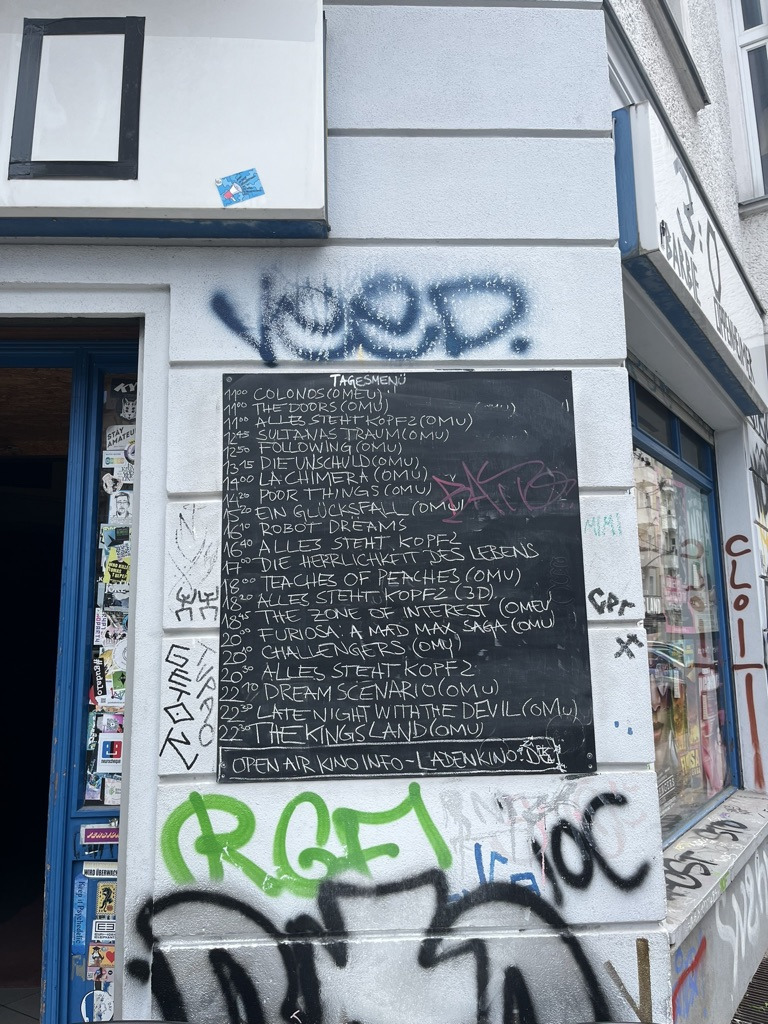 3:0
BARBIE
OPPENHEIMER
VOED.
TAGESMENÜ
1100 COLONOS (OMEU)
1100 THE DOORS (OMU)
1100 ALLES STEHT KOPF 2 (OMU)
1245 SULTANAS TRAUM (OMU)
1250 FOLLOWING (OMU)
1315 DIE UNSCHULD (OMU)
1400 LA CHIMERA (OMU)
1420 POOR THINGS (OMU)
1520 EIN GLÜCKSFALL (OMU)
1610 ROBOT DREAMS
1640 ALLES STEHT KOPF 2
1700 DIE HERRLICHKEIT DES LEBENS
1800 TEACHES OF PEACHES (OMU)
1820 ALLES STEHT KOPF 2 (3D)
1845 THE ZONE OF INTEREST (OMEU)
2000 FURIOSA: A MAD MAX SAGA (OMU)
2010 CHALLENGERS (OMU)
2030 ALLES STEHT KOPF 2
2210 DREAM SCENARIO (OMU)
2230 LATE NIGHT WITH THE DEVIL (OMU)
2230 THE KINGS LAND (OMU)
OPEN AIR KINO INFO - LADENKINO.DE
STAY
AMATEUR
MIMI
GPR
TURBO
RGF